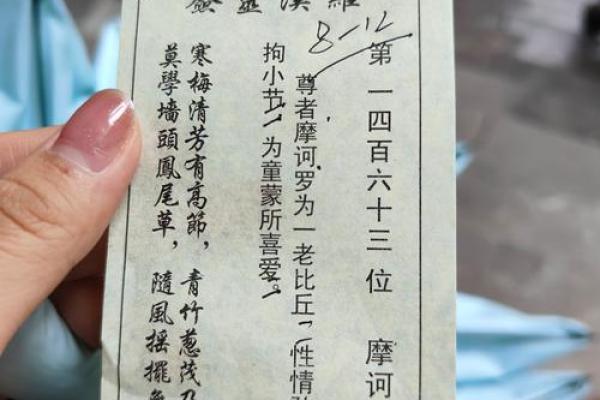 羅漢靈簽
8-12
第一四百六十三位 摩诃
尊者摩诃罗为一老比丘，性情
拘小节，为童蒙所喜爱。
寒梅清芳有高節，青竹葱茂乃
莫學墙頭鳳尾草，隨風摇擺